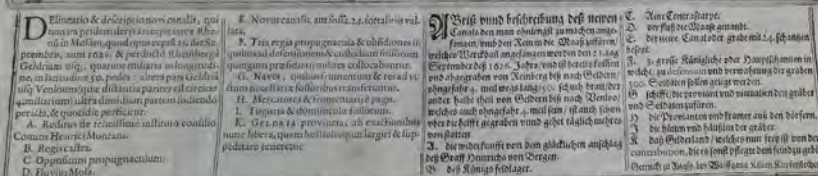 DElineatio & descriptio noni canalis, qui
nonita pridem deriuari cœptus ex Rhe-
no in Mosam, quod opus cœpit 21. die Se-
ptembris, anni 1626. & perductũ Rhenberga
Geldriam usq;, quatuor miliaria in longitudi-
ne, in latitudine 50. pedes: altera pars Geldria
usq; Venloum (quæ distantia pariter est circiter
4. miliarium) ultra dimidiam partem fodiendo
peracta, & quotidie perficitur.
A. Reditus
Comitis Henrici Montani.
B. Regis castra.
C. Oppositum propugnaculum.
D. Fluvius Mosa.
E. Novus canalis, aut fossa, 24. fortalitiis val-
lata.
F. Tria regia propugnacula & obsidiones in
quibus ad defensionem & custodiam fossorum
quingenti præsidiarii milites collocabuntur.
G. Naves, quibus frumentum & res ad vi-
ctum necessariæ fossoribus transferuntur.
H. Mercatores & frumentatores pagi.
I. Tuguria & domuncula fossorum.
K. Geldria provincia, ab exactionibus
nunc libera, quam hosti olim largiri & sup-
peditare tenebatur.
ABriß vnnd beschreibung deß newen
Canals den man ohnlengst zu machen ange-
fangen, vmb den Rein in die Maaß zuführen/
welches Werck dañ angefangen worden den 21. tag
September deß 1626. Jahrs/ vnd ist bereits fortführt
vnd abgegraben von Reinberg biß nach Geldern/
ohngefahr 4. meil wegs lang/ 50. schuch brait/ der
ander halbe theil von Geldern biß nach Venloo/
welches auch ohngefahr 4. meil sein/ ist auch schon
vber die helfft gegraben vnnd gehet täglich mehrers
von statten.
A. die widerkunfft von dem glücklichen anschlag
deß Graff Heinrichs von Bergen.
B deß Königs feldlager.
C. Aine Contrescarpe.
D. der fluß die Maaß genandt.
E. der newe Canal oder grabe mit 24. schantzen
besetzt.
F. 3. große Königliche oder Hauptschantzen in
welche zu defension vnd verwahrung die gräber
500. Soldaten sollen gelegt werden.
G schiffe, die proviant vnd victualien den gräber
vnd Soldaten zuführen.
H die Provianten vnd kramer auß den dörffern.
I die hütten vnd häußlin der gräber.
K daß Gelderland/ welches nun frey ist von der
contribution, die es sonst pflegte dem feind zu geben
Getruckt zu Augsp. bey Wolffgang Kilian Kupfferstecher